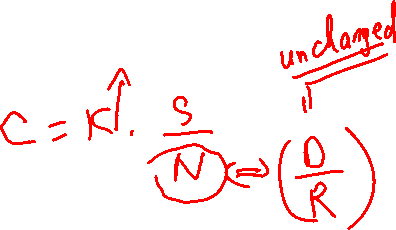 unchanged
C = K↑ · S/N ⇔ (D/R)